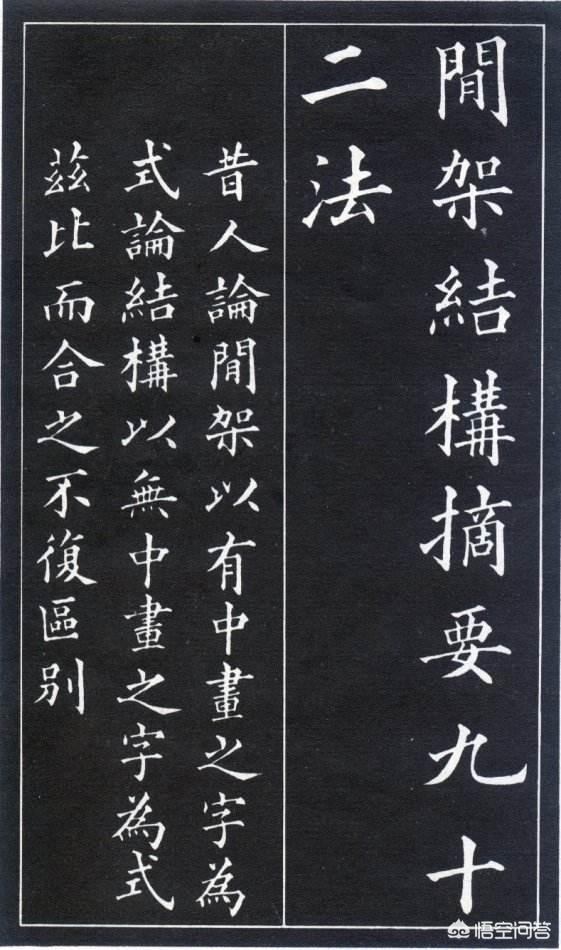 間架結構摘要九十
二法
昔人論間架以有中畫之字為
式論結構以無中畫之字為式
茲比而合之不復區別
悟空问答